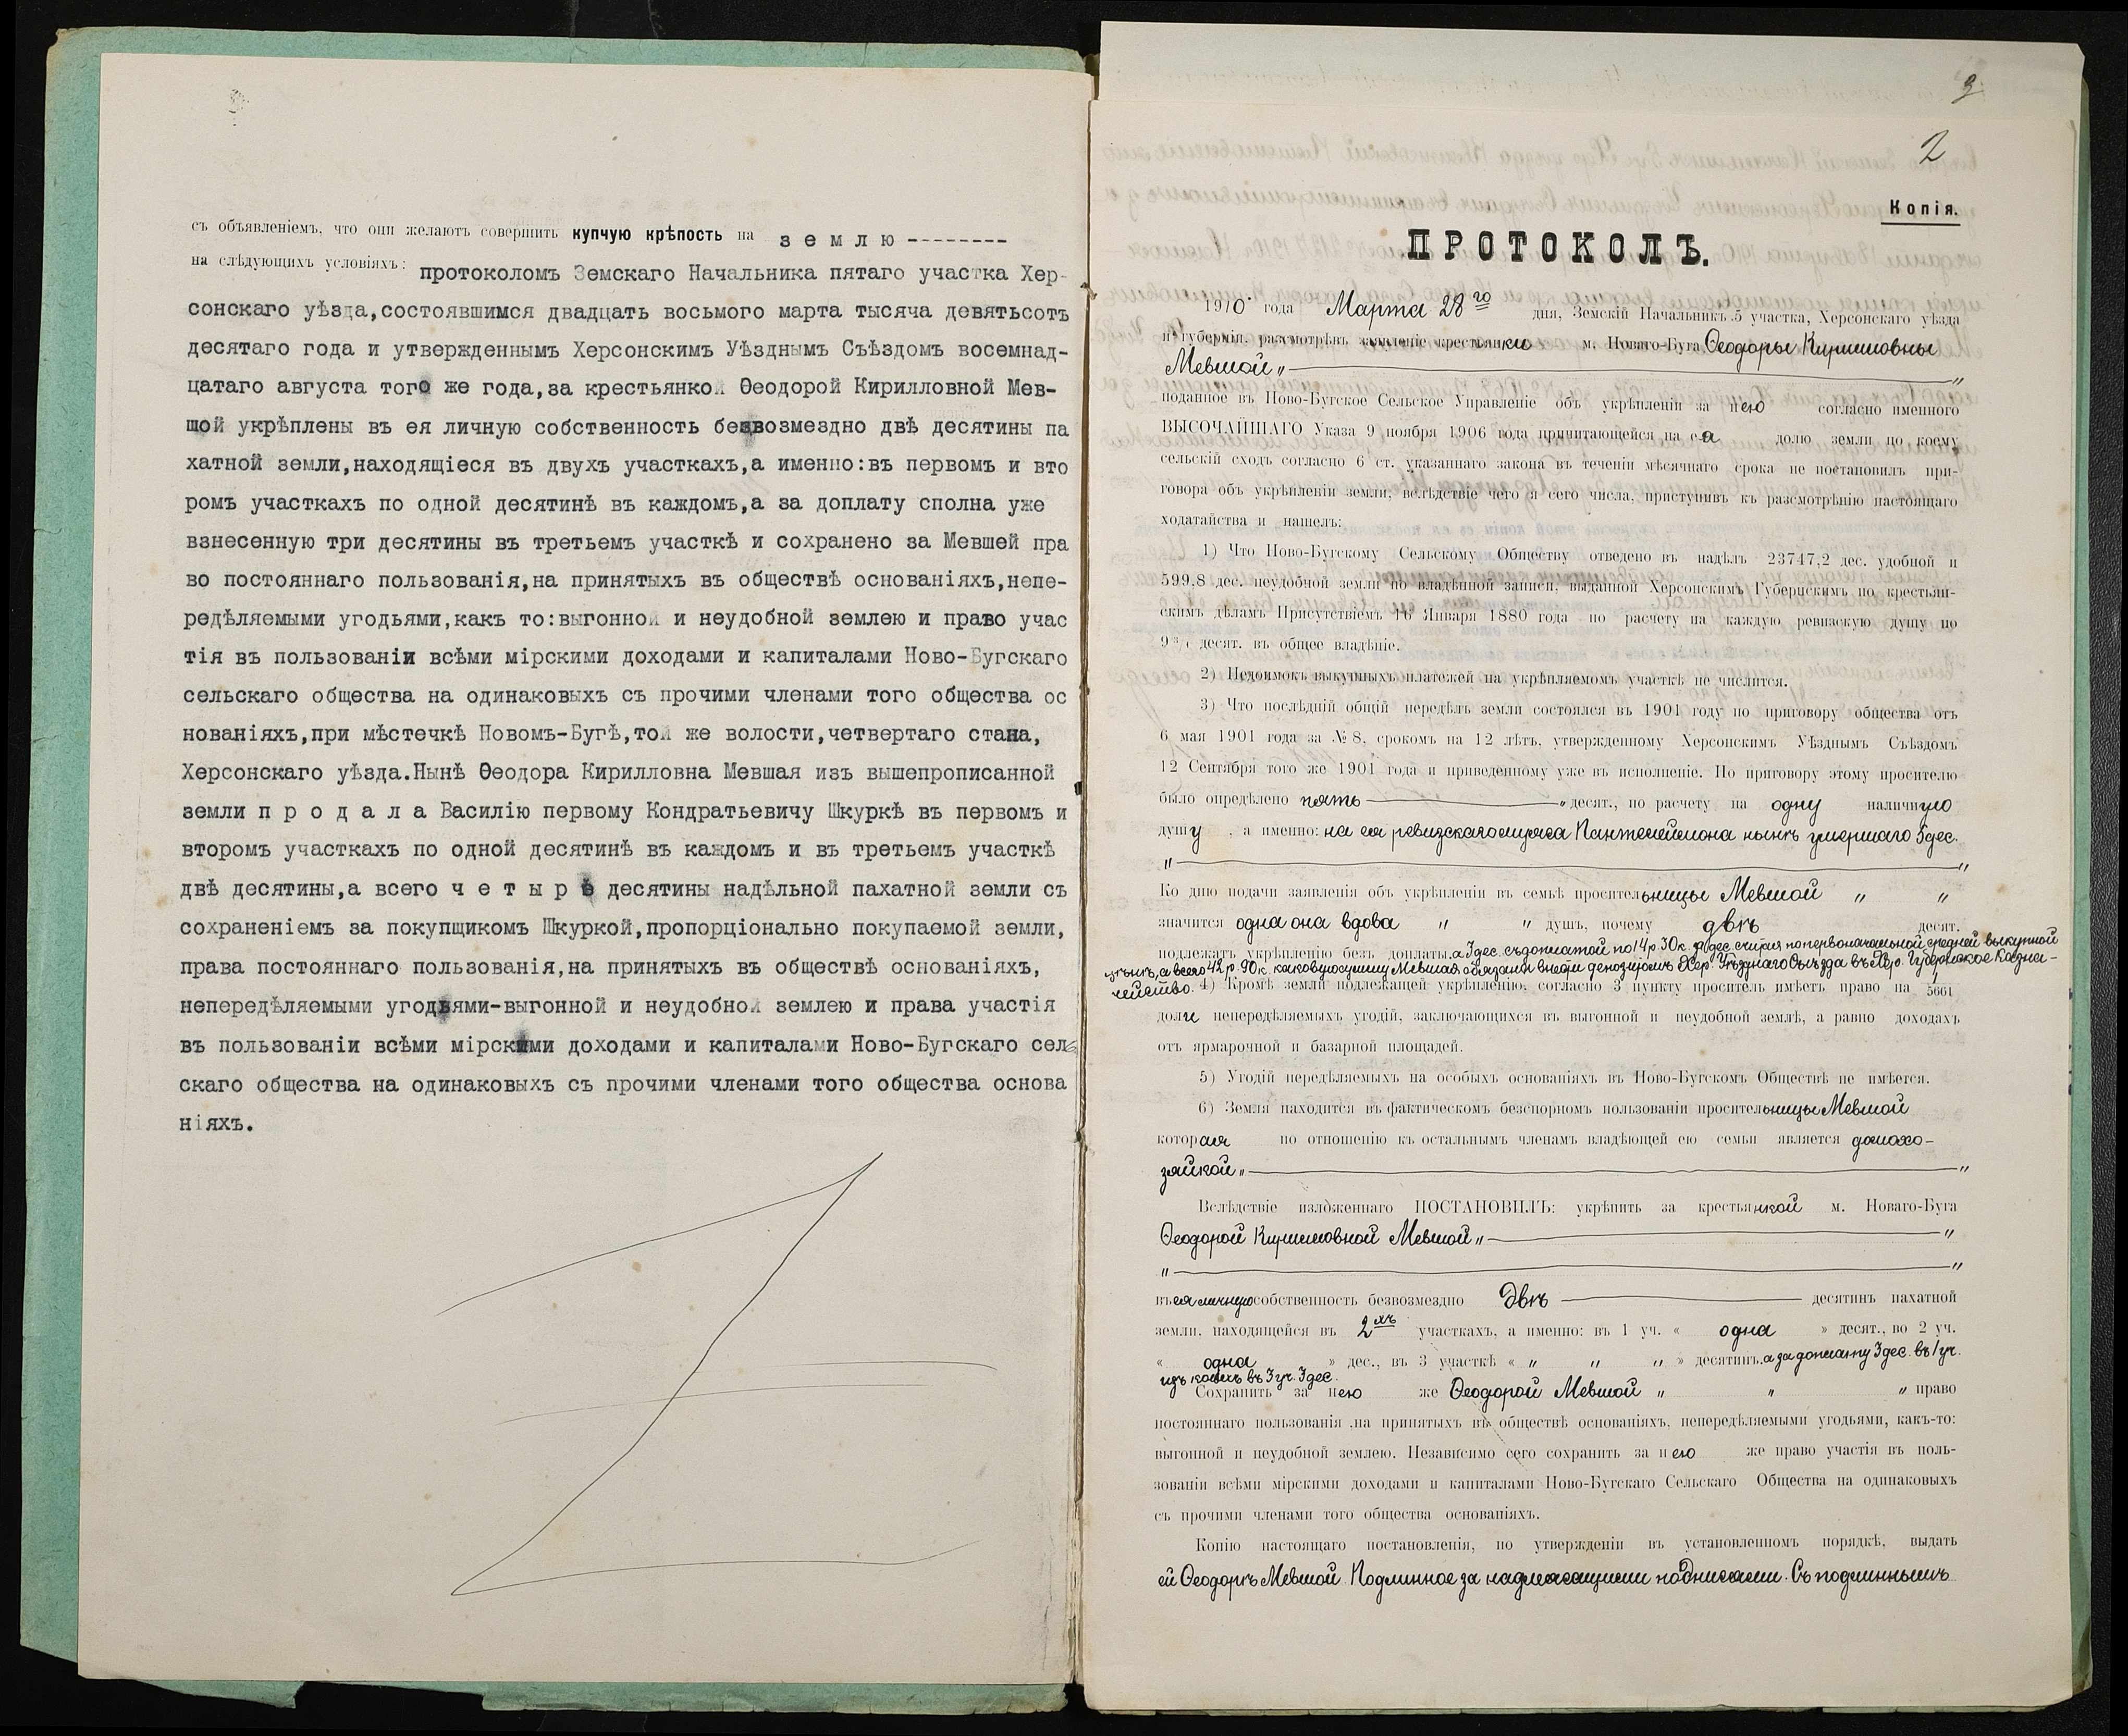 съ объявленіемъ, что они желаютъ совершить купчую крѣпость на з е м л ю --------
на слѣдующихъ условіяхъ: протоколомъ Земскаго Начальника пятаго участка Хер-
сонскаго уѣзда,состоявшимся двадцать восьмого марта тысяча девятьсотъ
десятаго года и утвержденнымъ Херсонскимъ Уѣзднымъ Съѣздомъ восемнад-
цатаго августа того же года,за крестьянкой Ѳеодорой Кирилловной Мев-
шой укрѣплены въ ея личную собственность безвозмездно двѣ десятины па
хатной земли,находящіеся въ двухъ участкахъ,а именно:въ первомъ и вто
ромъ участкахъ по одной десятинѣ въ каждомъ,а за доплату сполна уже
взнесенную три десятины въ третьемъ участкѣ и сохранено за Мевшей пра
во постояннаго пользованія,на принятыхъ въ обществѣ основаніяхъ,непе-
редѣляемыми угодьями,какъ то:выгонной и неудобной землею и право учас
тія въ пользованіи всѣми мірскими доходами и капиталами Ново-Бугскаго
сельскаго общества на одинаковыхъ съ прочими членами того общества ос
нованіяхъ,при мѣстечкѣ Новомъ-Бугѣ,той же волости,четвертаго стана,
Херсонскаго уѣзда.Нынѣ Ѳеодора Кирилловна Мевшая изъ вышепрописанной
земли п р о д а л а Василію первому Кондратьевичу Шкуркѣ въ первомъ и
второмъ участкахъ по одной десятинѣ въ каждомъ и въ третьемъ участкѣ
двѣ десятины,а всего ч е т ы р ѣ десятины надѣльной пахатной земли съ
сохраненіемъ за покупщикомъ Шкуркой,пропорціонально покупаемой земли,
права постояннаго пользованія,на принятыхъ въ обществѣ основаніяхъ,
непередѣляемыми угодьями-выгонной и неудобной землею и права участія
въ пользованіи всѣми мірскими доходами и капиталами Ново-Бугскаго сель
скаго общества на одинаковыхъ съ прочими членами того общества основа
ніяхъ.
3
2
Копія.
ПРОТОКОЛЪ.
1910 года Марта 28го дня, Земскій Начальникъ 5 участка, Херсонскаго уѣзда
и губерніи, разсмотрѣвъ заявленіе крестьянки м. Новаго-Буга Ѳеодоры Кирилловны
Мевшой „ „
поданное въ Ново-Бугское Сельское Управленіе объ укрѣпленіи за нею согласно именного
ВЫСОЧАЙШАГО Указа 9 ноября 1906 года причитающейся на ея долю земли по коему
сельскій сходъ согласно 6 ст. указаннаго закона въ теченіи мѣсячнаго срока не постановилъ при-
говора объ укрѣпленіи земли, вслѣдствіе чего я сего числа, приступивъ къ разсмотрѣнію настоящаго
ходатайства и нашелъ:
1) Что Ново-Бугскому Сельскому Обществу отведено въ надѣлъ 23747,2 дес. удобной и
599,8 дес. неудобной земли по владѣнной записи, выданной Херсонскимъ Губернскимъ по крестьян-
скимъ дѣламъ Присутствіемъ 16 Января 1880 года по расчету на каждую ревизскую душу по
9 десят. въ общее владѣніе.
2) Недоимокъ выкупныхъ платежей на укрѣпляемомъ участкѣ не числится.
3) Что послѣдній общій передѣлъ земли состоялся въ 1901 году по приговору общества отъ
6 мая 1901 года за №8, срокомъ на 12 лѣтъ, утвержденному Херсонскимъ Уѣзднымъ Съѣздомъ
12 Сентября того же 1901 года и приведенному уже въ исполненіе. По приговору этому просителю
было опредѣлено пять „ десят., по расчету на одну наличную
душу , а именно: на ея ревизскаго мужа Пантелеймона нынѣ умершаго 5 дес.
„ „
Ко дню подачи заявленія объ укрѣпленіи въ семьѣ просительницы Мевшой „ „
значится одна она вдова „ „ душъ, почему двѣ десят.
подлежатъ укрѣпленію безъ доплаты, а 3 дес. съ доплатой по 14 р. 30 к. за дес. считая по первоначальной средней выкупной
цѣнѣ, а всего 42 р. 90 к. каковую сумму Мевшая обязана внести депозитомъ Хер. Уѣзднаго Съѣзда въ Хер. Губернское Казна-
чейство. 4) Кромѣ земли подлежащей укрѣпленію, согласно 3 пункту проситель имѣетъ право на 1/5661
доли непередѣляемыхъ угодій, заключающихся въ выгонной и неудобной землѣ, а равно доходахъ
отъ ярмарочной и базарной площадей.
5) Угодій передѣляемыхъ на особыхъ основаніяхъ въ Ново-Бугскомъ Обществѣ не имѣется.
6) Земля находится въ фактическомъ безспорномъ пользованіи просительницы Мевшой
которая по отношенію къ остальнымъ членамъ владѣющей ею семьи является домохо-
зяйкой „ „
Вслѣдствіе изложеннаго ПОСТАНОВИЛЪ: укрѣпить за крестьянкой м. Новаго-Буга
Ѳеодорой Кирилловной Мевшой „ „
„ „
въ ея личную собственность безвозмездно двѣ десятинъ пахатной
земли, находящейся въ 2хъ участкахъ, а именно: въ 1 уч. « одна » десят., во 2 уч.
« одна » дес., въ 3 участкѣ « „ „ „ » десятинъ. а за доплату 3 дес. въ 1 уч.
изъ коихъ въ 3 уч. 3 дес.
Сохранить за нею же Ѳеодорой Мевшой „ „ „ право
постояннаго пользованія ,на принятыхъ въ обществѣ основаніяхъ, непередѣляемыми угодьями, какъ-то:
выгонной и неудобной землею. Независимо сего сохранить за нею же право участія въ поль-
зованіи всѣми мірскими доходами и капиталами Ново-Бугскаго Сельскаго Общества на одинаковыхъ
съ прочими членами того общества основаніяхъ.
Копію настоящаго постановленія, по утвержденіи въ установленномъ порядкѣ, выдать
ей Ѳеодорѣ Мевшой. Подлинное за надлежащими подписями. Съ подлиннымъ